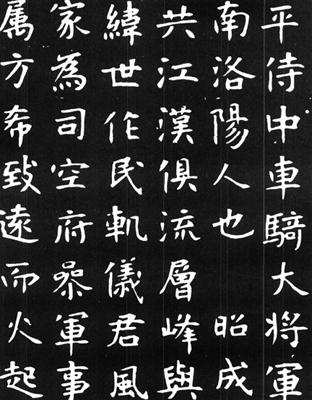 平侍中車騎大将軍
南洛陽人也 昭成
共江漢俱流層峰與
緯世作民軌儀君風
家為司空府參軍事
属方希致遠而火起